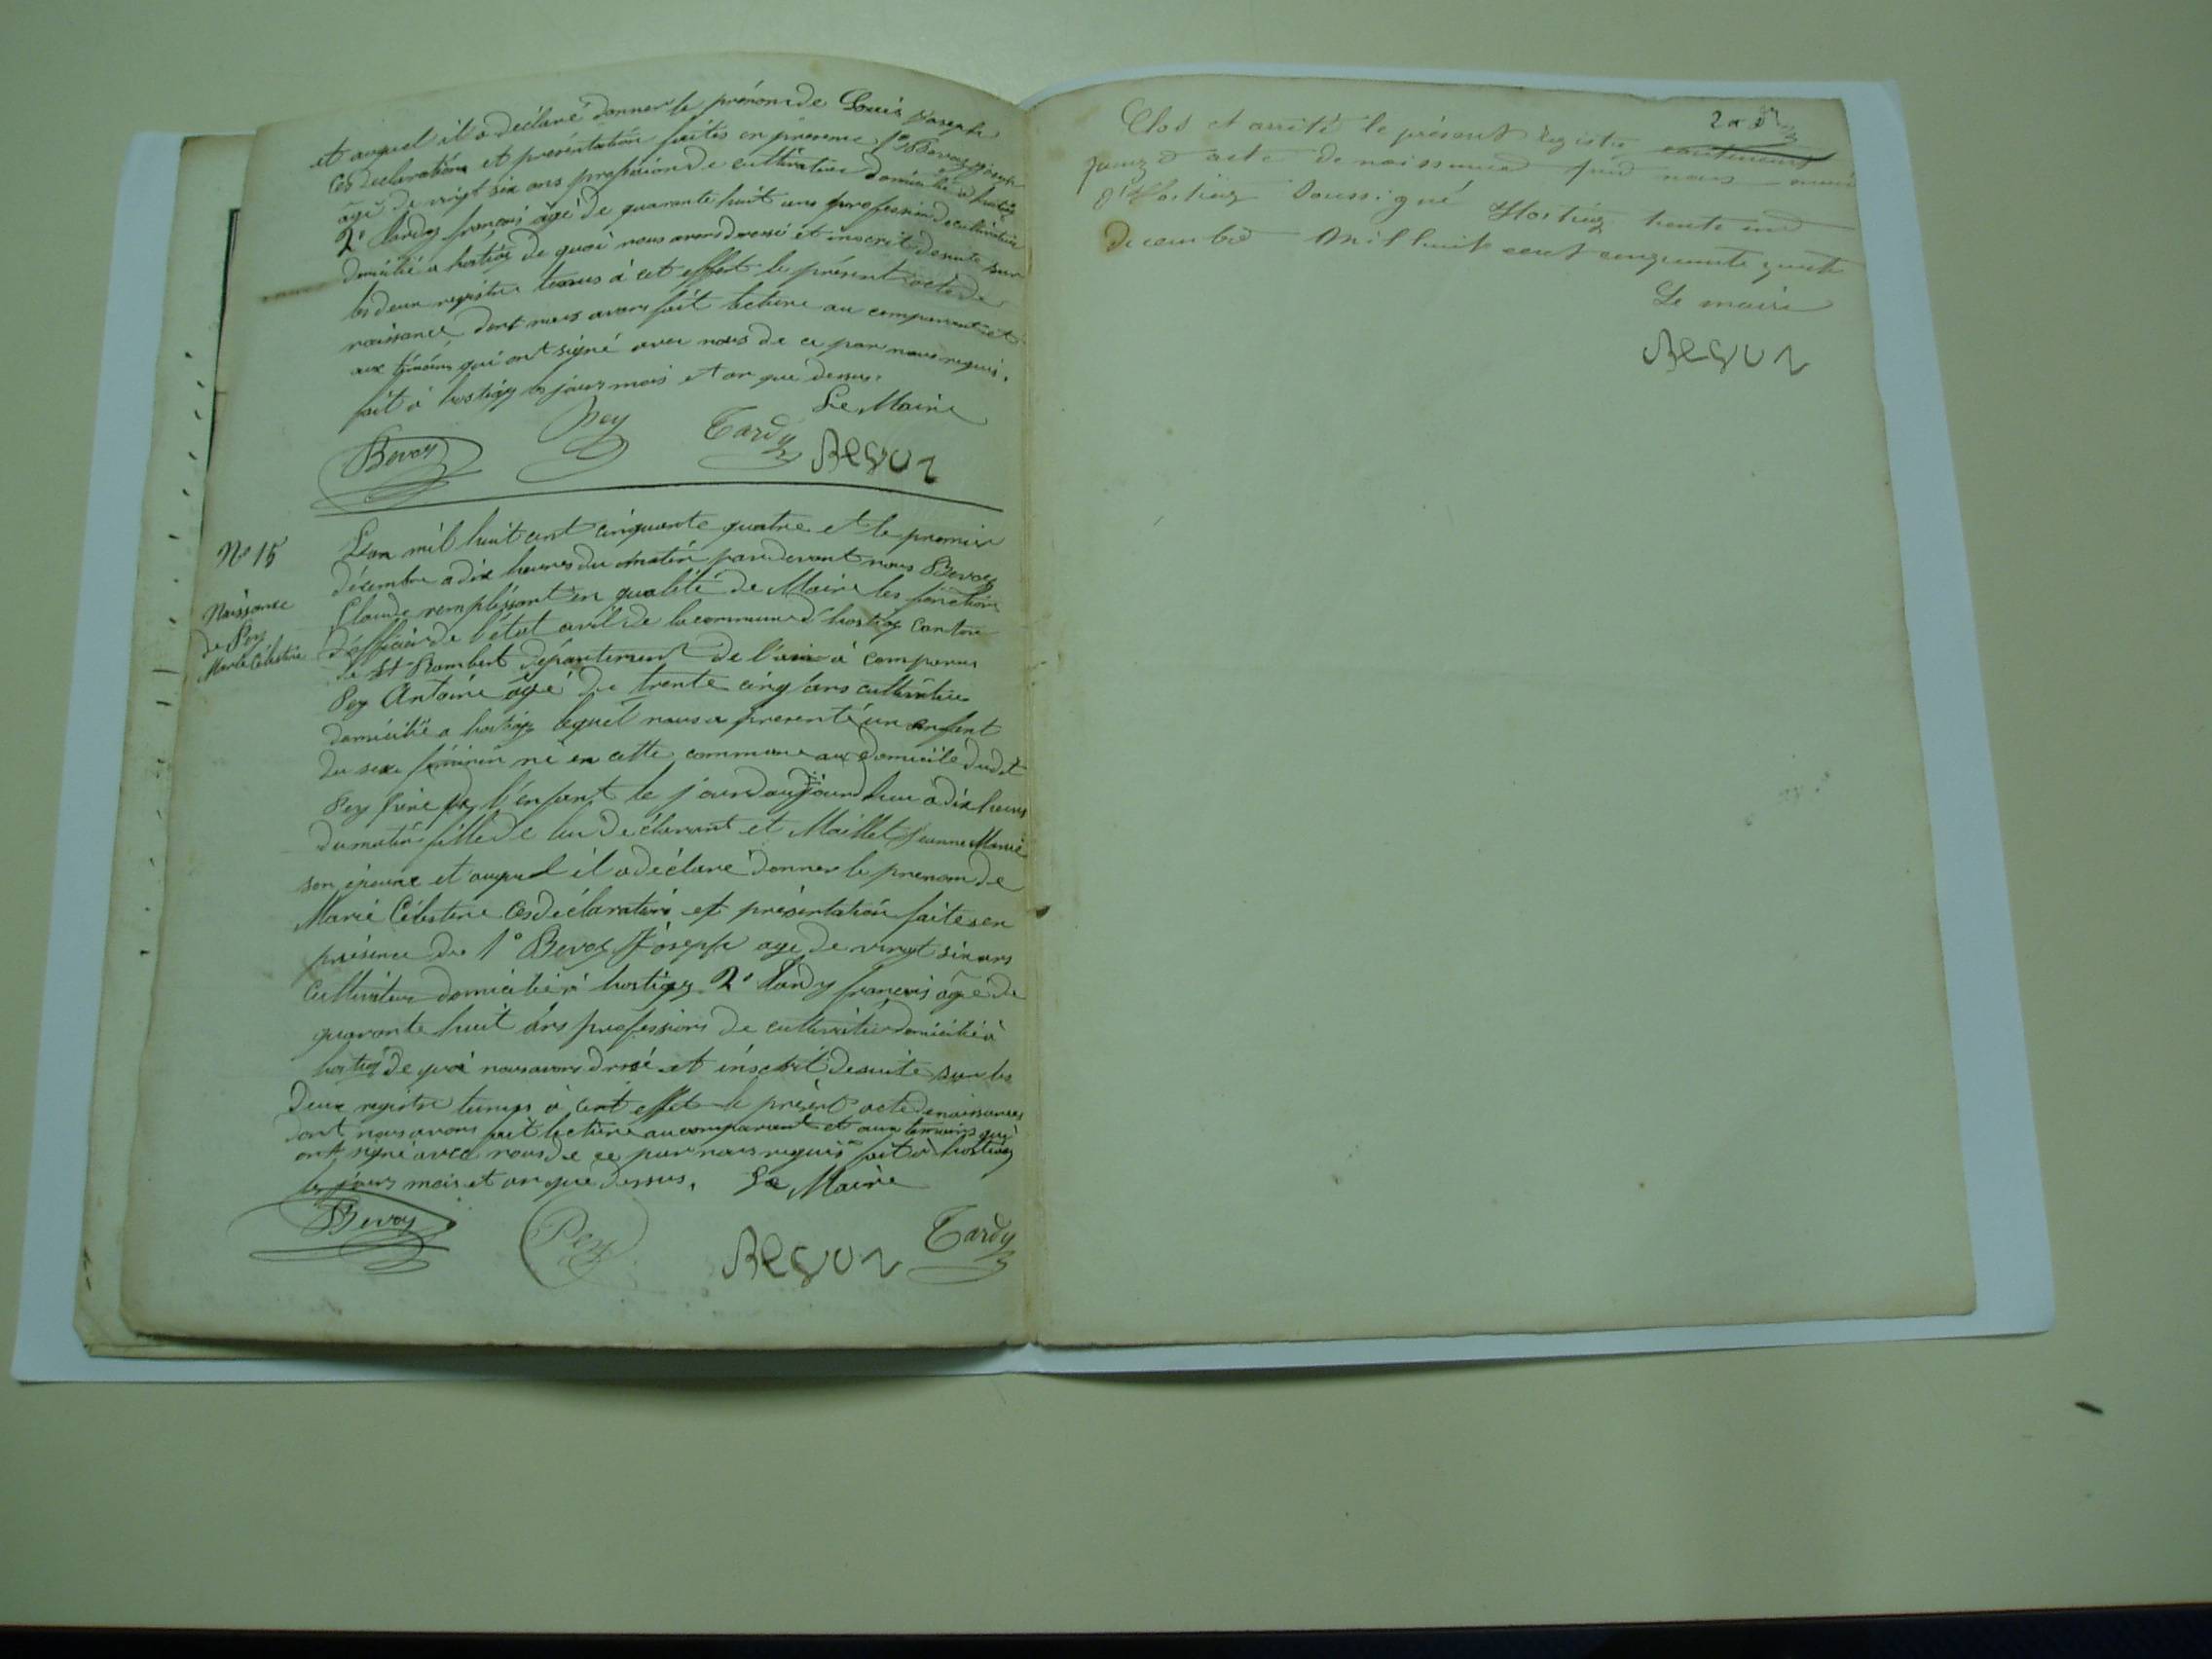 et auquel il a déclaré donner le prénom de Louis Joseph
Ces declarations et présentation faites en presence 1° Bevoz Joseph
âgé de vingt six ans profession de cultivateur domicilié à hostiaz
2° Tardy francois âgé de quarante huit ans profession de cultivateur
domicilié a hostiaz de quoi nous avons dressé et inscrit desuite sur
les deux registre tenus à cet effet le présent acte de
naissance dont nous avons fait lecture au comparant et
aux témoins qui ont signé avec nous de ce par nous requis.
fait à hostiaz les jours mois et an que dessus.
Le Maire
Bevoz Pey Tardy BEVOZ
N° 15
Naissance
de Pey
Marie Célestine
L'an mil huit cent cinquante quatre et le premier
décembre a dix heures du matin pardevant nous Bevoz
Claude remplissant en qualité de Maire les fonctions
d'officier de l'état civil de la commune d'hostiaz Canton
de St Rambert département de l'ain à comparus
Pey Antoine âgé de trente cinq ans cultivateur
domicilié a hostiaz lequel nous a presenté un enfant
du sexe féminin né en cette commune au domicile dudit
Pey père de l'enfant le jour d'aujourd'hui à dix heures
du matin fille de lui déclarant et Maillet Jeanne Marie
son épouse et auquel il a déclaré donner le prenom de
Marie Célestine Ces déclarations et présentation faites en
présence de 1° Bevoz Joseph agé de vingt six ans
Cultivateur domicilié à hostiaz 2° Tardy francois âgé de
quarante huit ans profession de cultivateur domicilié à
hostiaz de quoi nous avons dressé et inscrit desuite sur les
deux registre tenus à cet effet le présent acte de naissances
dont nous avons fait lecture au comparant et aux temoins qui
ont signé avec nous de ce par nous requis fait à hostiaz
les jours mois et an que dessus. Le Maire
Bevoz Pey BEVOZ Tardy
Clos et arrêté le présent registre contenant
quinze acte de naissance par nous maire
d'Hostiaz Soussigné Hostiaz trente un
decembre mil huit cent cinquante quatre
Le maire
BEVOZ